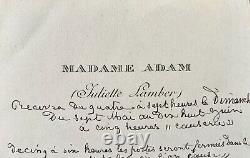 MADAME ADAM
(Juliette Lamber)
Recevra de quatre à sept heures le Dimanche
du sept Mai au dix huit Juin
à cinq heures "causerie"
de cinq à six heures les portes seront fermées dans